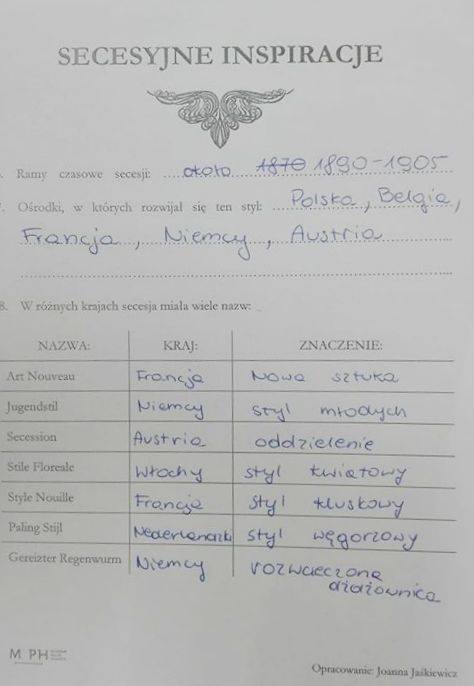 SECESYJNE INSPIRACJE
Ramy czasowe secesji: około 1870 1890-1905
Ośrodki, w których rozwijał się ten styl: Polska, Belgia,
Francja, Niemcy, Austria
8. W różnych krajach secesja miała wiele nazw:
NAZWA: KRAJ: ZNACZENIE:
Art Nouveau Francja Nowa sztuka
Jugendstil Niemcy styl młodych
Secession Austria oddzielenie
Stile Floreale Włochy styl kwiatowy
Style Nouille Francja styl kluskowy
Paling Stijl Nederlandzki styl węgorzowy
Gereizter Regenwurm Niemcy rozwścieczona
dżdżownica
M PH
Opracowanie: Joanna Jaśkiewicz